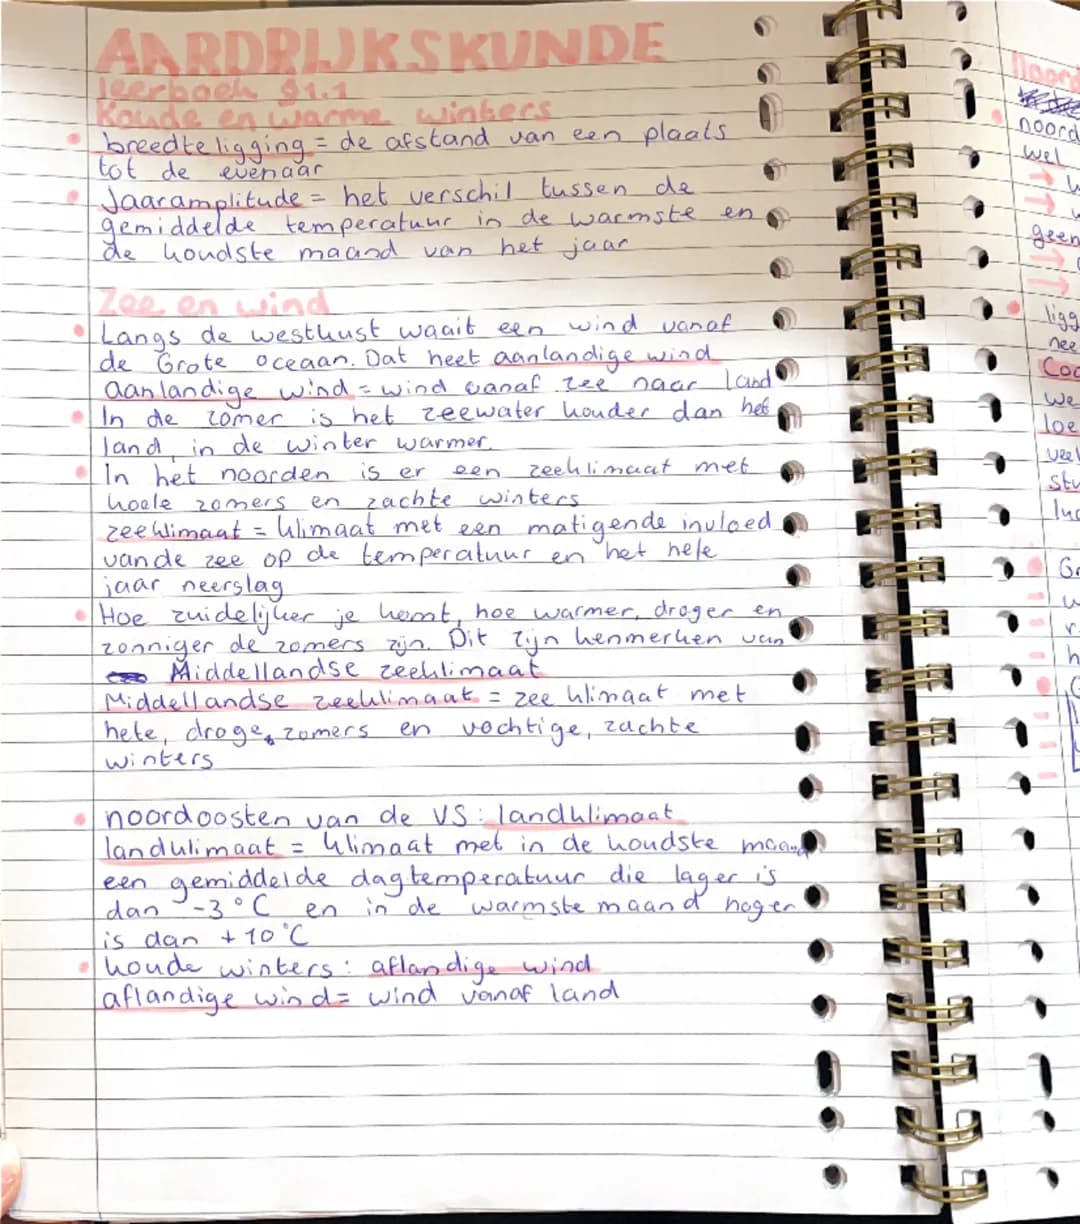 AARDRIJKSKUNDE
leerboek §1.1
Koude en warme winters
breedteligging = de afstand van een plaats
tot de evenaar
Jaaramplitude = het verschil tussen de
gemiddelde temperatuur in de warmste en
de koudste maand van het jaar
Zee en wind
Langs de westkust waait een wind vanaf
de Grote oceaan. Dat heet aanlandige wind
aanlandige wind = wind vanaf zee naar land
In de zomer is het zeewater kouder dan het
land, in de winter warmer.
In het noorden is er een zeeklimaat met
koele zomers en zachte winters
zeeklimaat = klimaat met een matigende invloed
vande zee op de temperatuur en het hele
jaar neerslag
Hoe zuidelijker je komt, hoe warmer, droger en
zonniger de zomers zijn. Dit zijn kenmerken van
Middellandse zeeklimaat
Middellandse zeeklimaat = zee klimaat met
hete, droge, zomers en vochtige, zachte
winters
noordoosten van de VS: landklimaat
landklimaat = klimaat met in de koudste maand
een gemiddelde dagtemperatuur die lager is
dan -3°C en in de warmste maand hoger
is dan +10°C
koude winters: aflandige wind
aflandige wind= wind vanaf land
noord
wel
geen
ligg
nee
we
loe
veel